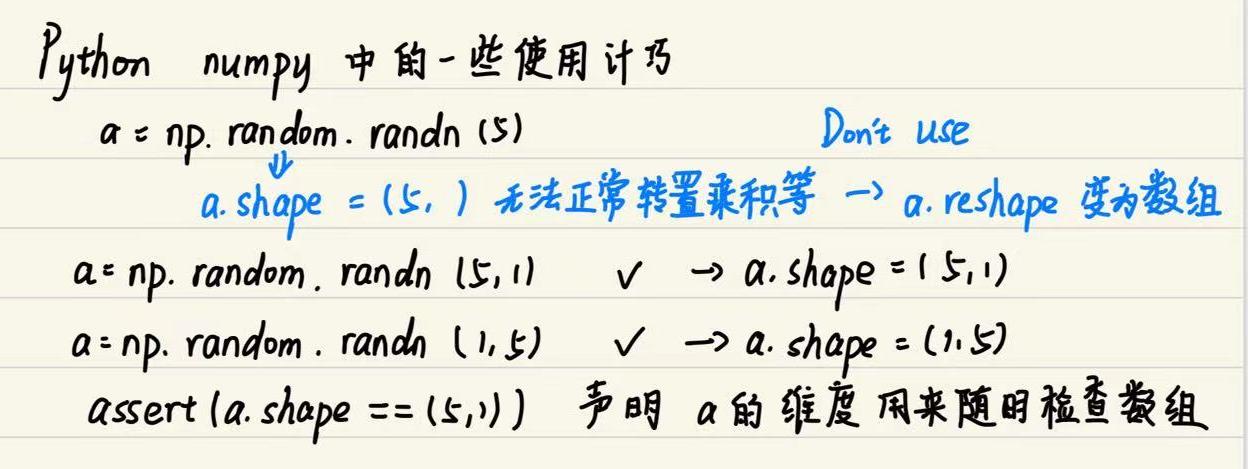 Python numpy 中的一些使用计巧
a = np. random. randn (5)
Don't use
a. shape = (5, ) 无法正常转置乘积等 → a. reshape 变为数组
a = np. random. randn (5,1) ✓ → a. shape = (5,1)
a = np. random. randn (1,5) ✓ → a. shape = (1,5)
assert (a. shape == (5,1)) 声明 a 的维度 用来随时检查数组